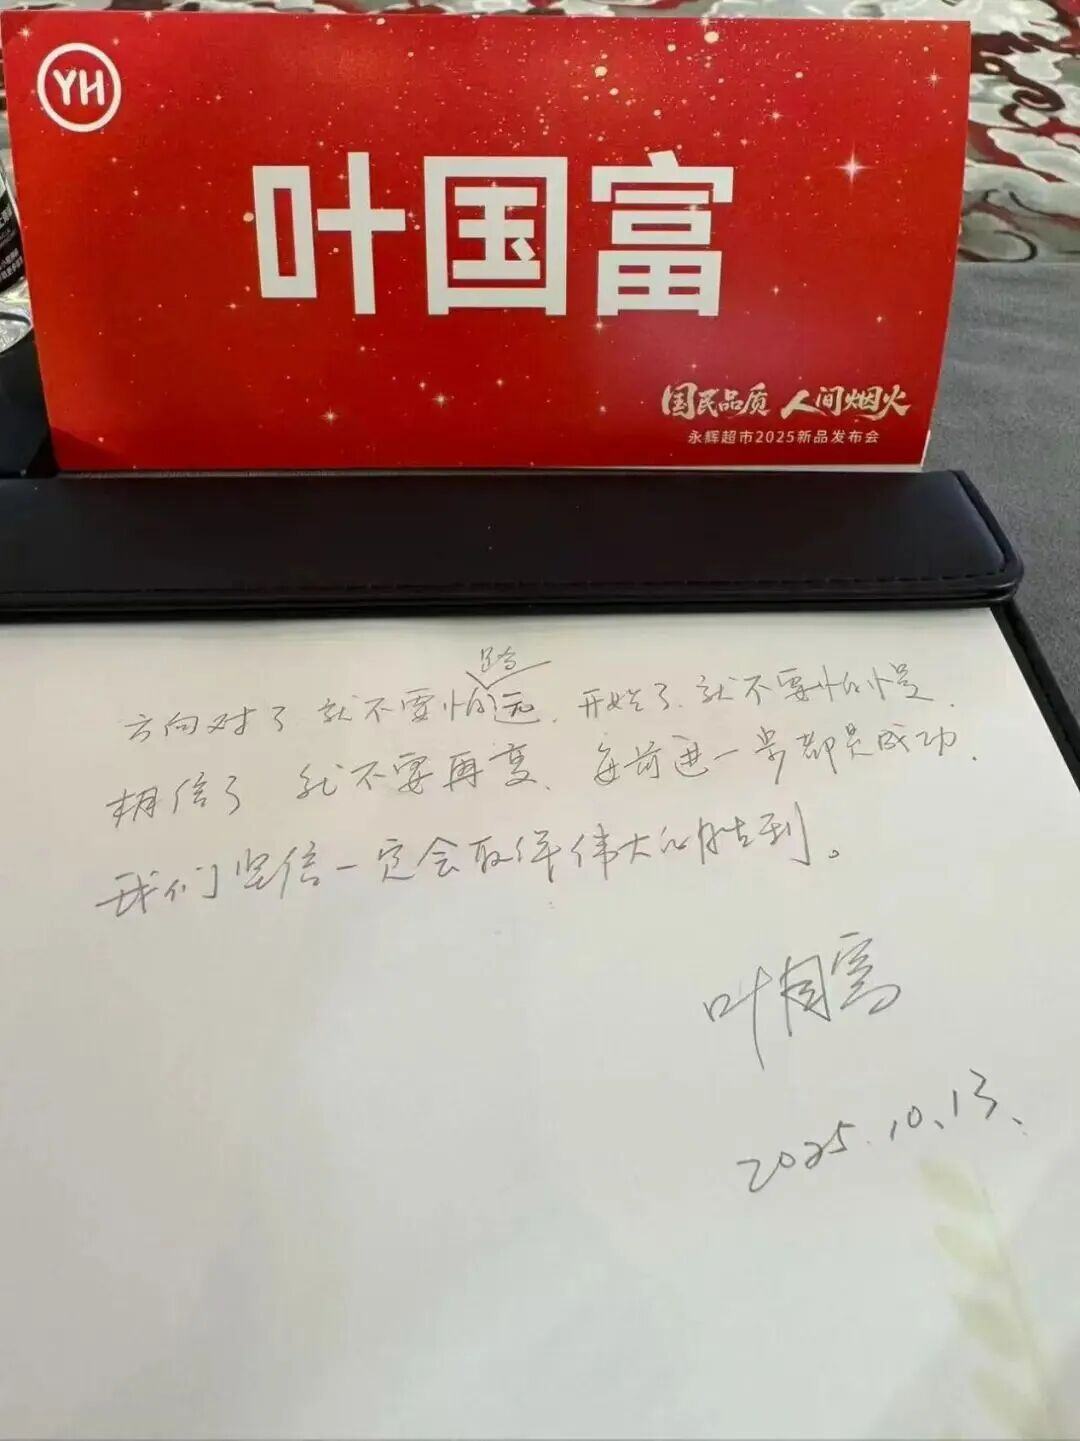 YH
叶国富
国民品质 人间烟火
永辉超市2025新品发布会
方向对了 就不要怕路远、开始了、就不要怕慢、
相信了 就不要再变、每前进一步都是成功、
我们坚信一定会取得伟大的胜利。
叶国富
2025.10、13、